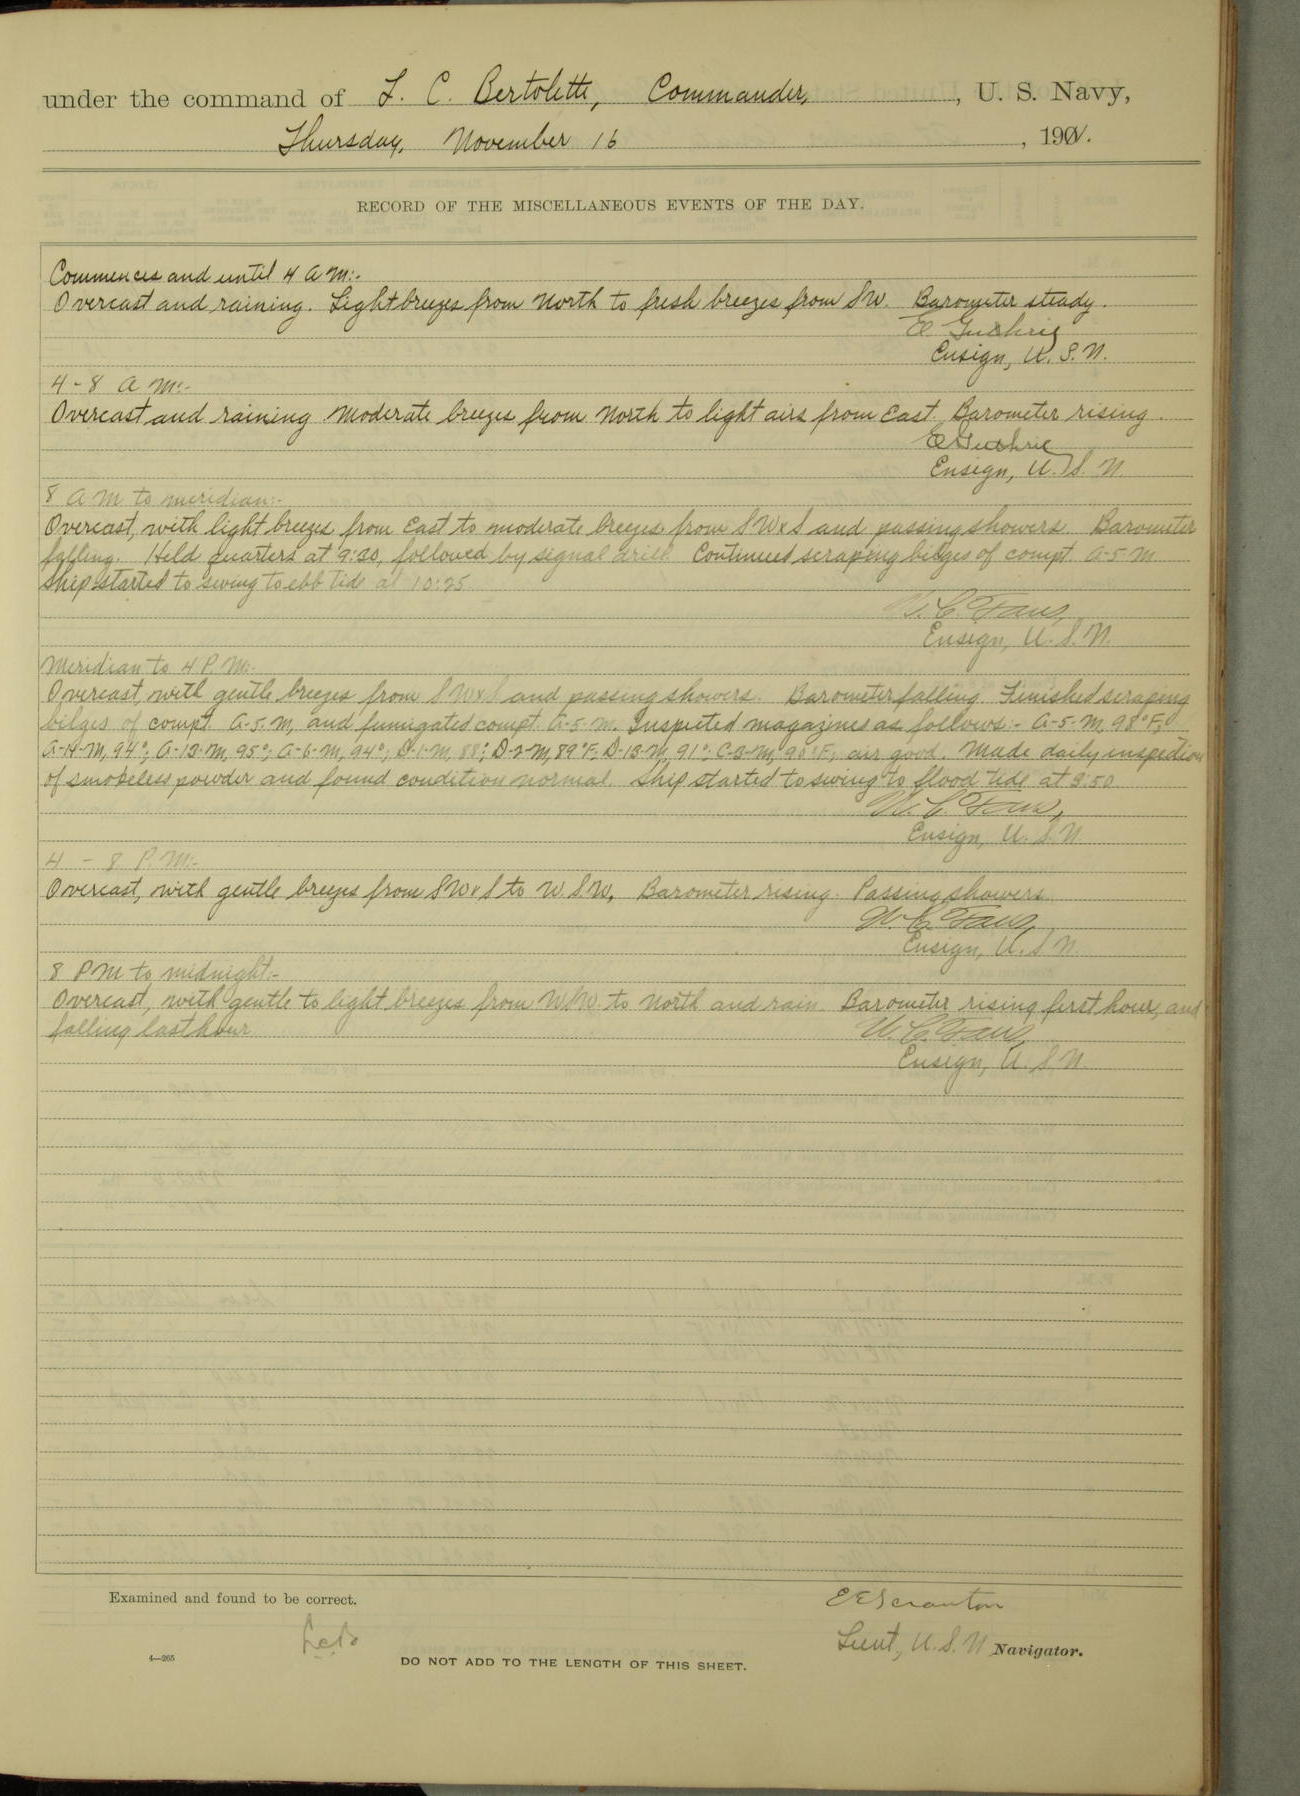 under the command of L. C. Bertolette, Commander, , U. S. Navy,
Thursday, November 16 , 1901.
RECORD OF THE MISCELLANEOUS EVENTS OF THE DAY.
Commences and until 4 A M:-
Overcast and raining. Light breezes from North to fresh breezes from SW. Barometer steady.
E. Guthrie
Ensign, U. S. N.
4-8 A M:-
Overcast and raining. Moderate breezes from North to light airs from East. Barometer rising.
E Guthrie
Ensign, U. S. N.
8 A M to meridian:-
Overcast, with light breezes from East to moderate breezes from SWxS and passing showers. Barometer
falling. Held quarters at 9:30, followed by signal drill. Continued scraping bilges of compt. A-5-M
Ship started to swing to ebb tide at 10:25
Ensign, U. S. N.
Meridian to 4 P. M:-
Overcast, with gentle breezes from SWxS and passing showers. Barometer falling. Finished scraping
bilges of compt. A-5-M, and fumigated compt. A-5-M. Inspected magazines as follows:- A-5-M, 98°F;
A-14-M, 94°; A-13-M, 95°; A-6-M, 94°; D-1-M, 88°; D-2-M, 89°F; D-13-M, 91°; C-3-M, 90°F; air good. Made daily inspection
of smokeless powder and found condition normal. Ship started to swing to flood tide at 3:50
Ensign, U. S. N.
4 - 8 P. M:-
Overcast, with gentle breezes from SWxS to W.S.W. Barometer rising. Passing showers.
Ensign, U. S. N.
8 P M to midnight:-
Overcast, with gentle to light breezes from WSW to North and rain. Barometer rising first hour, and
falling last hour
Ensign, U. S. N.
Examined and found to be correct.
E E Scranton
LCB
Lieut, U. S. N. Navigator.
4—265
DO NOT ADD TO THE LENGTH OF THIS SHEET.